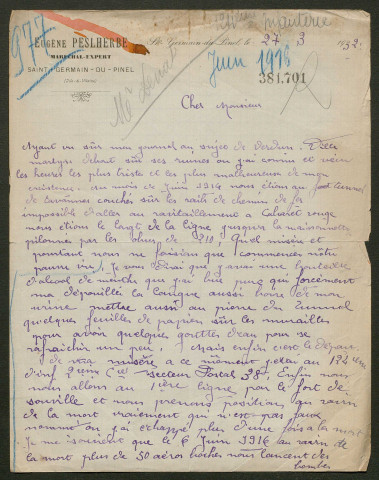 977
légère
planterie
EUGÈNE PESLHERBE
MARÉCHAL-EXPERT
SAINT-GERMAIN-DU-PINEL
(Ille-et-Vilaine)
St Germain du Pinel, le 27 3 1932
Juin 1916
381.701
Cher Monsieur
Ayant vu sur mon journal au sujet de Verdun. Ville
martyre debout sur ses ruines ou j'ai connu et vécu
les heures les plus tristes et les plus malheureuse de mon
existence. Au mois de Juin 1914 nous étions au tunnel
de tavannes coucher sur les rails de chemin de fer
impossible d'aller au ravitaillement à Cabaret rouge
nous étions le long de la ligne jusqu'a la maisonnette
pilonnée par les obus de 210. Quel misère et
pourtant nous ne faision que commencer notre
pauvre vie. Je vous dirai que j'avais une bouteille
d'alcool de menthe que j'ai bue pure qui forcément
ma dépouillée la langue aussi boire et mon
urine mettre aussi au pied du tunnel
quelques feuilles de papier sur les murailles
pour avoir quelques gouttes d'eau pour se
rafraichir un peu. Mais enfin c'est le départ
de ma misère a ce moment j'étai au 134 eme
d'inf 9 eme Cie secteur Postal 38. Enfin nous
nous allons au 1ère ligne par le fort de
souville et nous prenons position au ravin
de la mort vraiement qui n'est pas faux
nommé on j'ai échappé plus d'une fois a la mort
Je me souvient que le 6 Juin 1916 au ravin de
la mort plus de 50 aéros boches nous lancent des
bombes